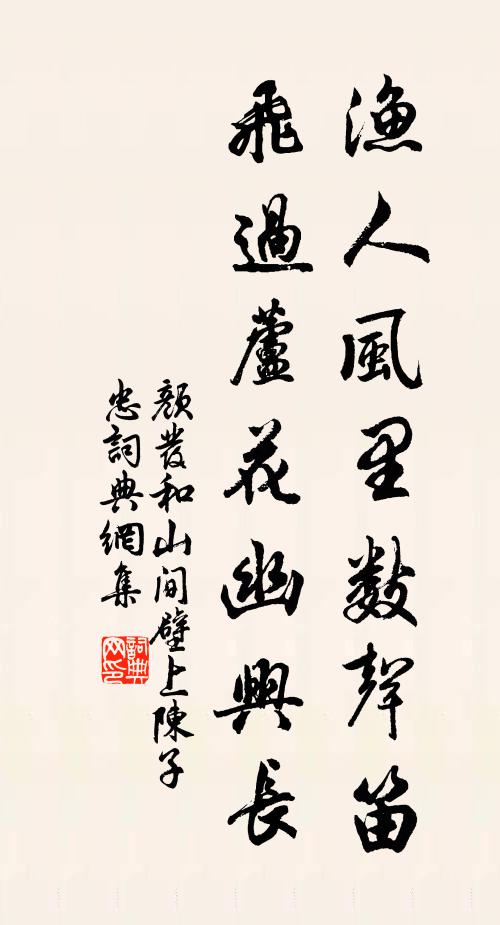 漁人風里數聲笛
飛過蘆花幽興長
顏發和山間壁上陳子
忠詞典網集
詞典網印